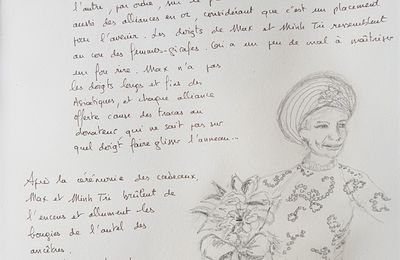 l'autre, par ordre, sur le
aussi des alliances en or, considérant que c'est un placement
pour l'avenir. Les doigts de Max et Minh Tü ressemblent
au cou des femmes-girafes. On a un peu de mal à maîtriser
un fou rire. Max n'a pas
les doigts longs et fins des
Asiatiques, et chaque alliance
offerte cause des tracas au
donateur qui ne sait pas sur
quel doigt faire glisser l'anneau...
Après la cérémonie des cadeaux,
Max et Minh Tü brûlent de
l'encens et allument les
bougies de l'autel des
ancêtres.